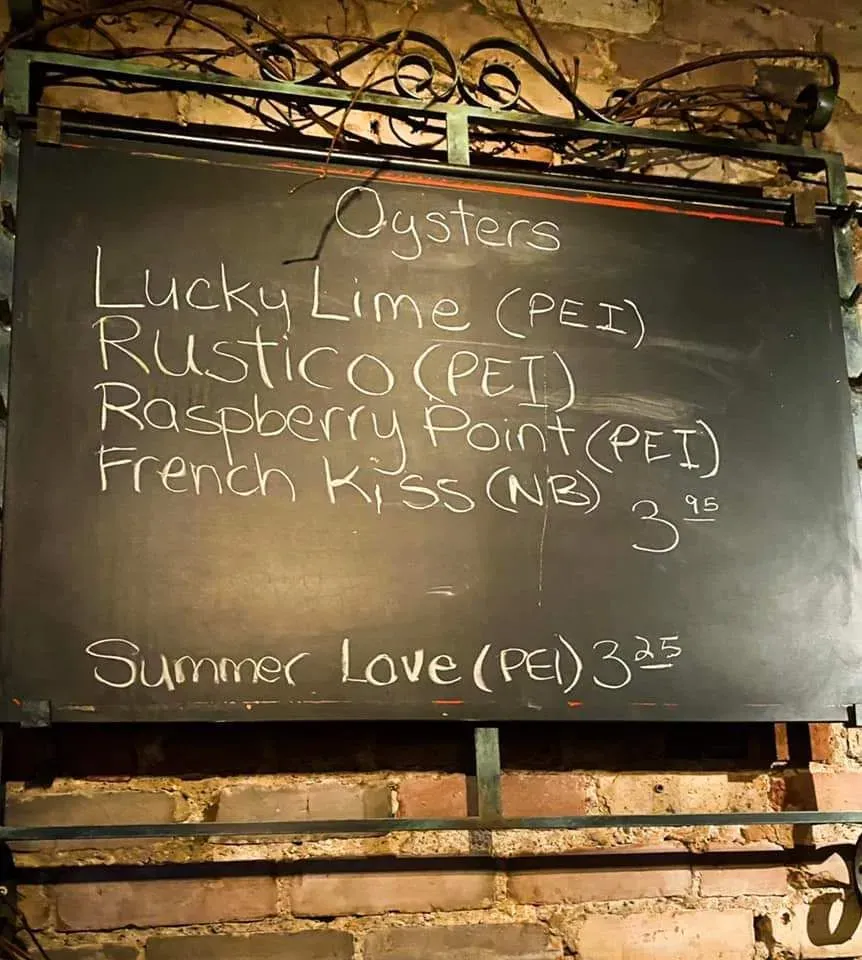 Oysters
Lucky Lime (PEI)
Rustico (PEI)
Raspberry Point (PEI)
French Kiss (NB)
3 95
Summer Love (PEI) 3 25